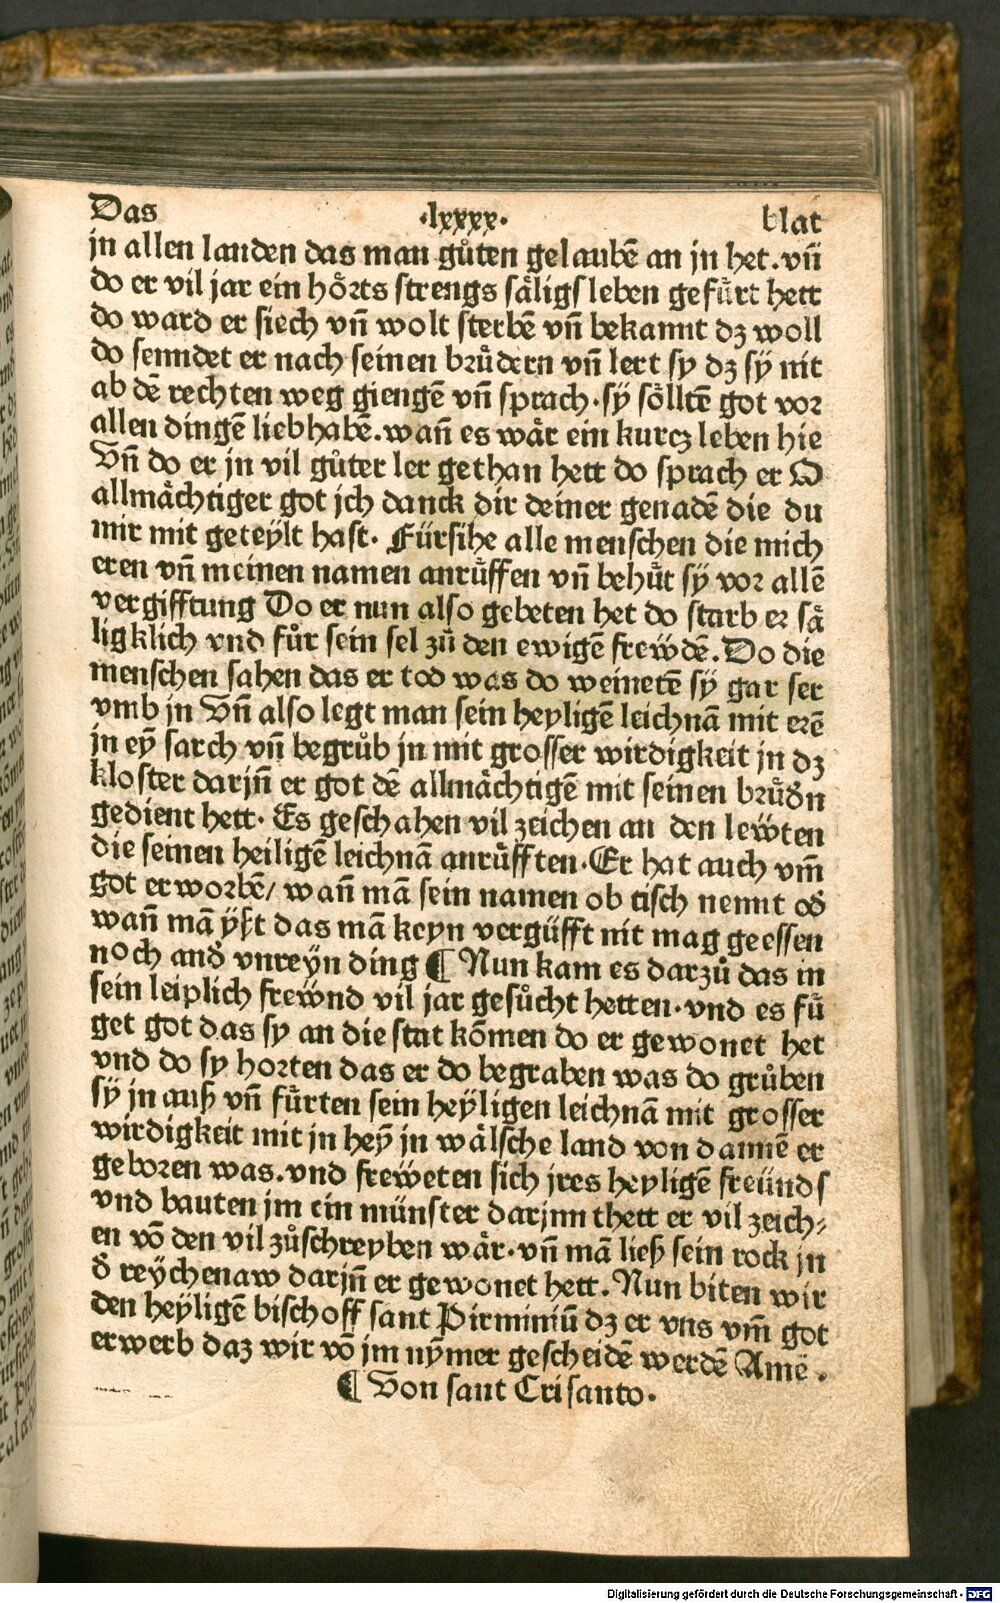 Das ·lxxxx· blat
jn allen landen das man gůten gelaubē an jn het. vn̄
do er vil jar ein hoͤrts strengs saͤligs leben gefuͤrt hett
do ward er siech vn̄ wolt sterbē vn̄ bekannt dz woll
do senndet er nach seinen bruͤdern vn̄ lert sy dz sÿ nit
ab dē rechten weg giengē vn̄ sprach· sÿ soͤlltē got vor
allen dingē liebhabē. wan̄ es waͤr ein kurcz leben hie
Vn̄ do er jn vil gůter ler gethan hett do sprach er O
allmaͤchtiger got jch danck dir deiner genadē die du
mir mit geteÿlt hast· Fürsihe alle menschen die mich
eren vn̄ meinen namen anruͤffen vn̄ behuͤt sÿ vor allē
vergifftung Do er nun also gebeten het do starb er saͤ
ligklich vnd fůr sein sel zů den ewigē frewdē. Do die
menschen sahen das er tod was do weinetē sÿ gar ser
vmb jn Vn̄ also legt man sein heyligē leichnā mit erē
jn eÿ sarch vn̄ begrůb jn mit grosser wirdigkeit jn dz
kloster darjn̄ er got dē allmaͤchtigē mit seinen bruͤdn
gedient hett· Es geschahen vil zeichen an den lewten
die seinen heiligē leichnā anruͤfften· Er hat auch vm̄
got erworbē/ wan̄ mā sein namen ob tisch nennt od
wan̄ mā ÿst das mā keyn vergüfft nit mag geessen
noch and vnreÿn ding ¶ Nun kam es darzů das in
sein leiplich frewnd vil jar gesůcht hetten· vnd es fuͤ
get got das sy an die stat kōmen do er gewonet het
vnd do sy horten das er do begraben was do grůben
sÿ jn auß vn̄ fuͤrten sein heÿligen leichnā mit grosser
wirdigkeit mit jn heÿ jn waͤlsche land von dannē er
geboren was. vnd freweten sich jres heyligē freünds
vnd bauten jm ein münster darjnn thett er vil zeich⸗
en vō den vil zůschreyben waͤr· vn̄ mā ließ sein rock jn
d reÿchenaw darjn̄ er gewonet hett. Nun biten wir
den heÿligē bischoff sant Pirminiū dz er vns vm̄ got
erwerb daz wir vō jm nÿmer gescheidē werdē Amē.
¶ Von sant Crisanto.
Digitalisierung gefördert durch die Deutsche Forschungsgemeinschaft - DFG